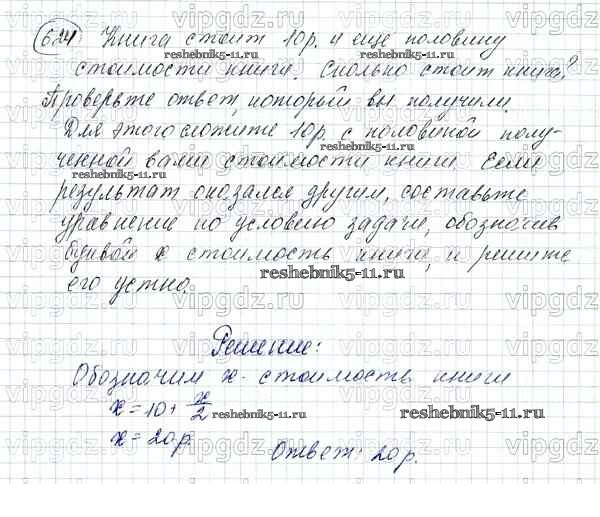 624 Книга стоит 10р. и еще половину
стоимости книги. Сколько стоит книга?
Проверьте ответ, который вы получили.
Для этого сложите 10р. с половиной полу-
ченной вами стоимости книги. Если
результат оказался другим, составьте
уравнение по условию задачи, обозначив
буквой x стоимость книги, и решите
его устно.
Решение:
Обозначим x - стоимость книги
x = 10 + x/2
x = 20р.
Ответ: 20р.
vipgdz.ru
reshebnik5-11.ru